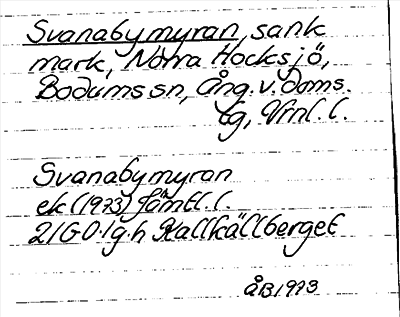 Svanabymyran, sank
mark, Norra Hocksjö,
Bodums sn, Ång. v. doms.
tg, Vrnl. l.
Svanabymyran
ek (1973) Jämtl. l.
21G 0-1 g.h Kallkällberget
ÅB 1973